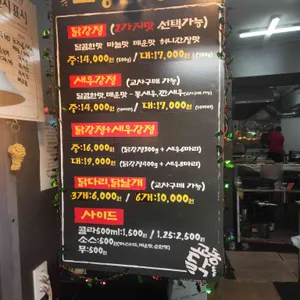 닭강정 (2가지맛 선택가능)
달콤한맛 마늘맛 매운맛 허니간장맛
중:14,000원 / 대:17,000원
새우강정 (교차구매 가능)
달콤한맛,매운맛
중:14,000원 / 대:17,000원
닭강정+새우강정
중:16,000원 (닭강정300g + 새우4마리)
대:19,000원 (닭강정400g + 새우8마리)
닭다리,닭날개 (교차구매 가능)
3개:6,000원 / 6개:10,000원
사이드
콜라500ml:1,500원 / 1.25:2,500원
소스:500원
무:500원